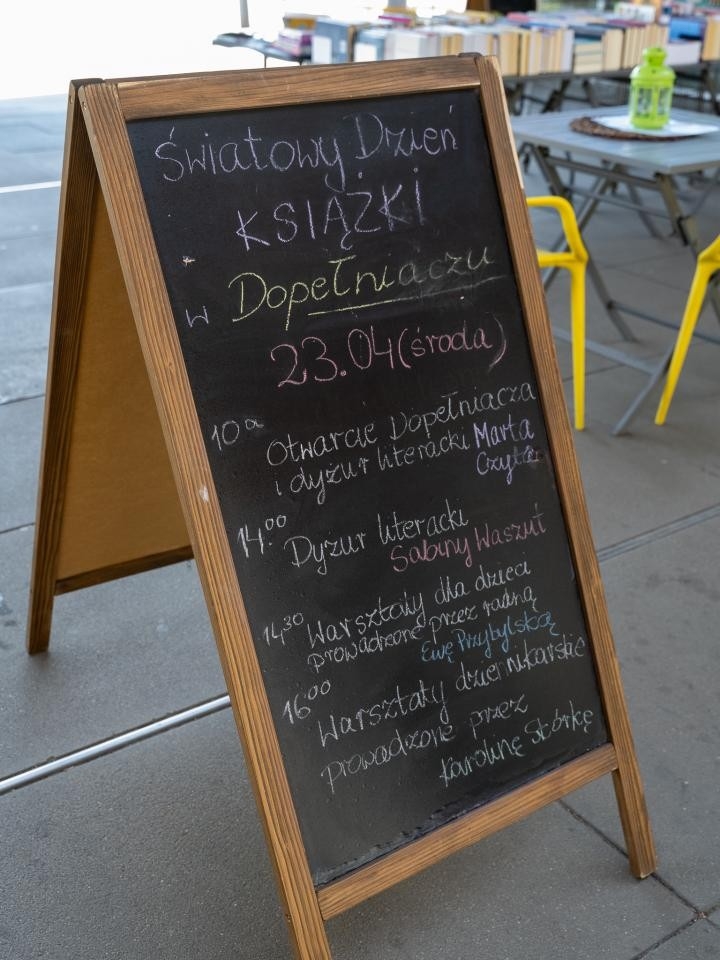 Światowy Dzień
KSIĄŻKI
w Dopełniaczu
23.04 (środa)
10 Otwarcie Dopełniacza
i dyżur literacki Marta
14.00 Dyżur literacki
Sabiny Waszut
14.30 Warsztaty dla dzieci
prowadzone przez radną
Ewę Przybylską
16.00 Warsztaty dziennikarskie
prowadzone przez
Karolinę Stórkę